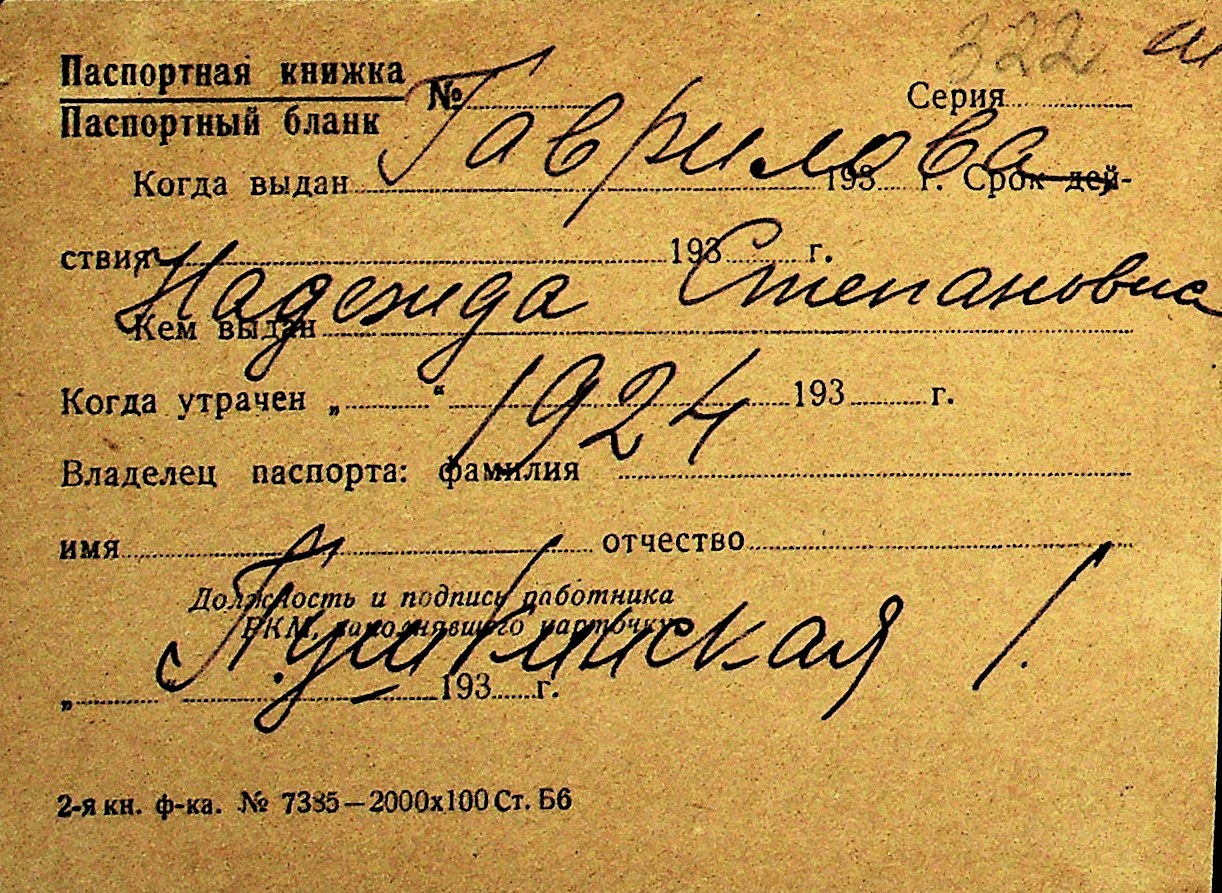 322
Паспортная книжка
Паспортный бланк
№ Серия
Гаврилова
Когда выдан 193 г. Срок дей-
ствия 193 г.
Надежда Степановна
Кем выдан
1924
Когда утрачен „ “ 193 г.
Владелец паспорта: фамилия
имя отчество
Должность и подпись работника
РКМ, заполнявшего карточку
Пушкинская 1.
„ 193 г.
2-я кн. ф-ка. № 7385—2000х100 Ст. Б6